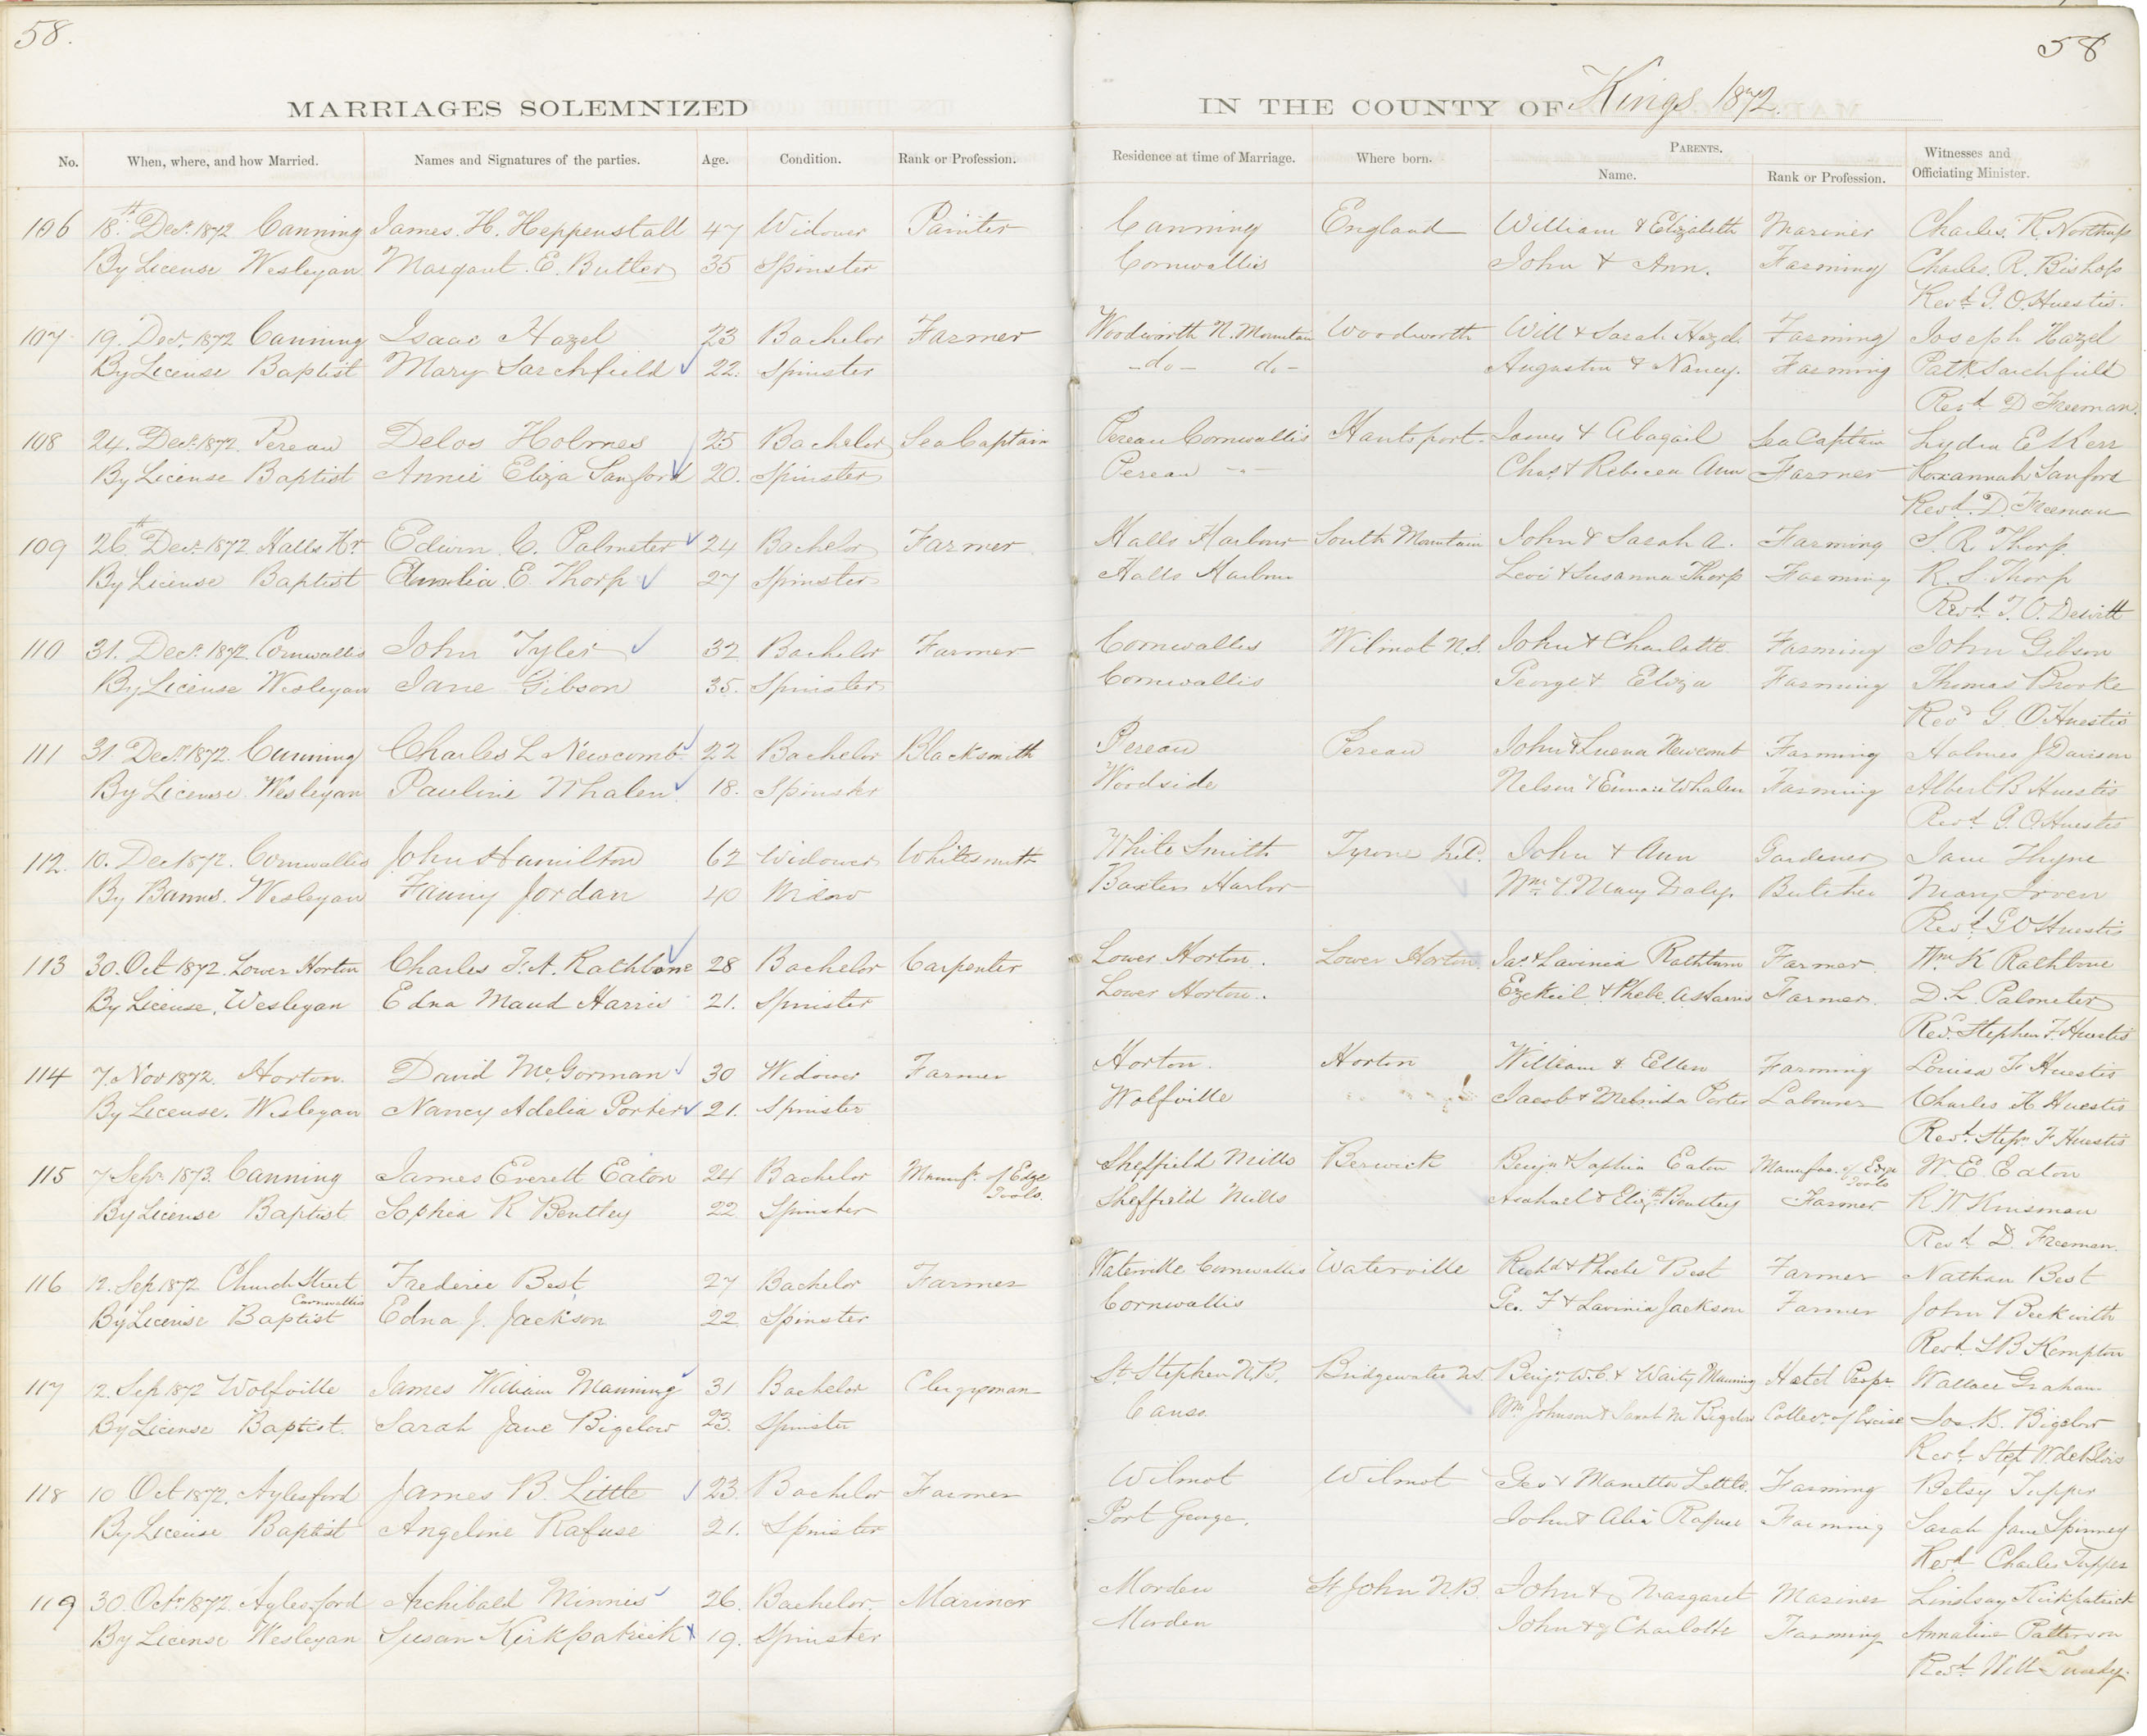 58.
58
MARRIAGES SOLEMNIZED IN THE COUNTY OF Kings 1872.
No. When, where, and how Married. Names and Signatures of the parties. Age. Condition. Rank or Profession. Residence at time of Marriage. Where born. PARENTS. Name. Rank or Profession. Witnesses and Officiating Minister.
106 18th Decr. 1872 Canning James. H. Heppenstall 47 Widower Painter Canning England William & Elizabeth Mariner Charles. R. Northup
By License Wesleyan Margaret. E. Butler 35 Spinster Cornwallis John & Ann. Farming Charles. R. Bishop
Revd. G. O. Huestis.
107 19. Decr. 1872 Canning Isaac Hazel 23 Bachelor Farmer Woodworth N. Mountain Woodworth Will & Sarah Hazel Farming Joseph Hazel
By License Baptist Mary Sarchfield 22. Spinster -do- do- Augustin & Nancy. Farming Patk Sarchfield
Revd. D Freeman.
108 24. Decr. 1872. Pereau Delos Holmes 25 Bachelor Sea Captain Pereau Cornwallis Hantsport. James & Abagail Sea Captain Lydia E Kerr
By License Baptist Annie Eliza Sanford 20. Spinster Pereau -"- Chas. & Rebecca Ann Farmer Roxannah Sanford
Revd. D. Freeman
109 26th Decr. 1872 Halls Hr Edwin. C. Palmeter 24 Bachelor Farmer Halls Harbour South Mountain John & Sarah A. Farming S. R. Thorp.
By License Baptist E. Thorp 27 Spinster Halls Harbour Levi & Susanna Thorp Farming R. S. Thorp
Revd. T. O. Dewitt
110 31. Decr. 1872. Cornwallis John Tyler 32 Bachelor Farmer Cornwallis Wilmot N.S. John & Charlotte. Farming John Gibson
By License Wesleyan Jane Gibson 35. Spinster Cornwallis George & Eliza Farming Thomas Brooke
Revd G. O Huestis
111 31. Decr. 1872. Canning Charles L Newcomb 22 Bachelor Blacksmith Pereau Pereau John & Luena Newcomb Farming Holmes J Davison
By License. Wesleyan Pauline Whalen 18. Spinster Woodside Nelson & Whalen Farming Albert B Huestis
Revd. G. O Huestis
112. 10. Dec 1872. Cornwallis John Hamilton 62 Widower Whitesmith White Smith Tyrone Ird. John & Ann Gardener Jane Thyne
By Banns. Wesleyan Fanny Jordan 40 Widow Baxters Harbor Wm. & Mary Daly. Butcher Mary Irven
Revd. G O Huestis
113 30. Oct 1872. Lower Horton Charles F. A. Rathbone 28 Bachelor Carpenter Lower Horton. Lower Horton. Jas. & Lavinia Farmer Wm. K Rathbone
By License, Wesleyan Edna Maud Harris 21. Spinster Lower Horton. Ezekiel & Phebe. A Harris Farmer. D. L. Palmeter
Revd. Stephen F. Huestis
114 7. Nov 1872. Horton. David McGorman 30 Widower Farmer Horton. Horton William & Ellen Farming Louisa F Huestis
By License. Wesleyan Nancy Adelia Porter 21. Spinster Wolfville Jacob & Melinda Porter Labourer Charles H Huestis
Revd. Stepn F Huestis
115 7 Sepr 1873. Canning James Everett Eaton 24 Bachelor Manufr. of Edge Tools. Sheffield Mills Berwick Benjn & Sophia Eaton Manufac. of Edge Tools W. E. Eaton
By License Baptist Sophia R Bentley 22 Spinster Sheffield Mills Asahael & Elizth. Bentley Farmer R W Kinsman
Revd. D. Freeman.
116 12. Sep 1872 Church Street Cornwallis Frederic Best 27 Bachelor Farmer Waterville Cornwallis Waterville Richd. & Phoebe Best Farmer Nathan Best
By License Baptist Edna J. Jackson 22 Spinster Cornwallis Geo. F & Lavinia Jackson Farmer John Beckwith
Revd. S B Kempton
117 12. Sep 1872 Wolfville James William Manning 31 Bachelor Clergyman St. Stephen N.B. Bridgewater N.S. Benjn. W. C. & Waity Manning Hotel Propr. Wallace Graham
By License Baptist. Sarah Jane Bigelow 23. Spinster Canso. Wm Johnson & Sarah M Bigelow Collecr. of Excise Jos. B. Bigelow
Revd. Step W. deBlois
118 10 Oct 1872. Aylesford James B. Little 23. Bachelor Farmer Wilmot Wilmot Geo & Manetta Little. Farming Betsy Tupper
By License Baptist Angeline Rafuse 21. Spinster Port George. John & Rafuse Farming Sarah Jane Spinney
Revd. Charles Tupper
119 30. Octr. 1872. Aylesford Archibald Minnis 26. Bachelor. Mariner Morden St John N.B. John & Margaret Mariner Lindsay Kirkpatrick
By License Wesleyan Susan Kirkpatrick 19. Spinster Morden John & Charlotte Farming Annaline Patterson
Revd. Will Tweedy.